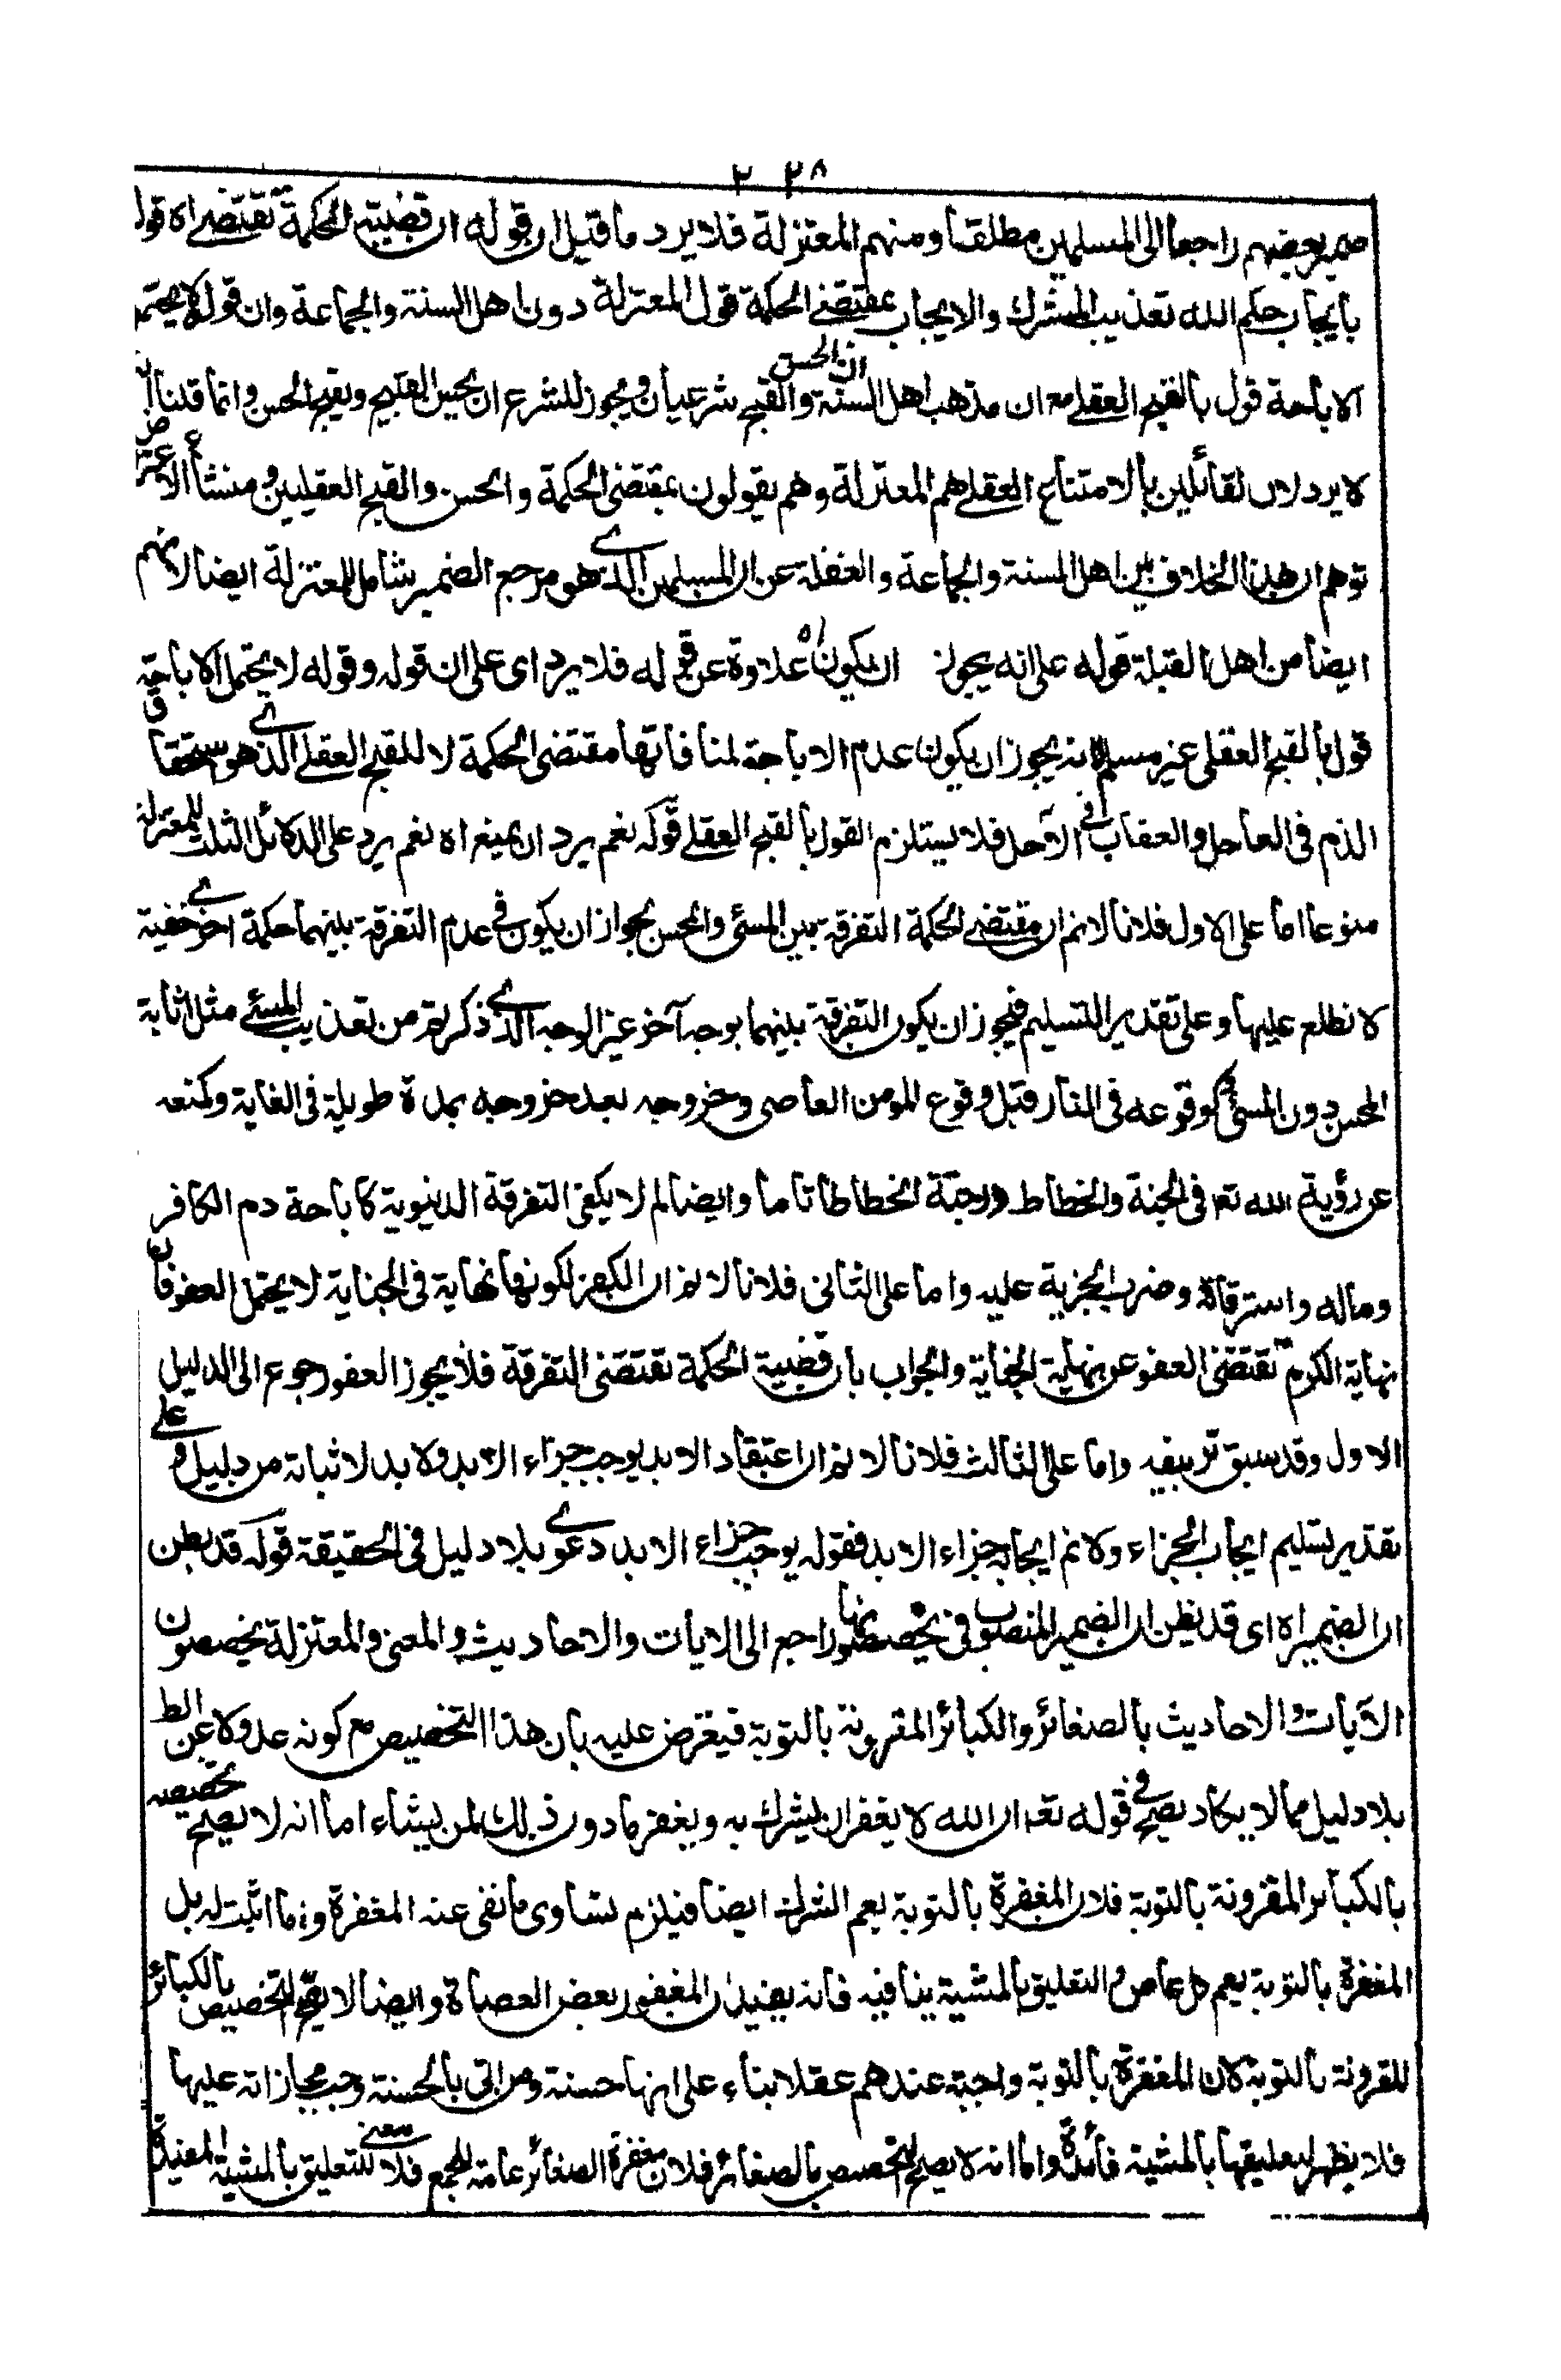 ٢ ٢٨
ضمير بعضهم راجعا الى المسلمين مطلقا ومنهم المعتزلة فلا يرد ما قيل ان قوله ان قضية الحكمة تقتضى اه قول
بايجاب حكم الله تعذيب المشرك والايجاب بمقتضى الحكمة قول المعتزلة دون اهل السنة والجماعة وان قوله لا يحتمل
الاباحة قول بالقبح العقلى مع ان مذهب اهل السنة ان الحسن والقبح شرعيان ويجوز للشرع ان يحسن القبيح ويقبح الحسن وانما قلنا انه
لا يرد لان القائلين بالامتناع العقلى هم المعتزلة وهم يقولون بمقتضى الحكمة والحسن والقبح العقليين ومنشأ الاعتراض
توهم ان هذا الخلاف بين اهل السنة والجماعة والغفلة عن ان المسلمين الذى هو مرجع الضمير شامل للمعتزلة ايضا لانهم
ايضا من اهل القبلة قوله على انه يجوز ان يكون اه علاوة عن قوله فلا يرد اى على ان قوله وقوله لا يحتمل الاباحة
قول بالقبح العقلى غير مسلم لانه يجوز ان يكون عدم الاباحة لمنافاتها مقتضى الحكمة لا للقبح العقلى الذى هو استحقاق
الذم فى العاجل والعقاب فى الآجل فلا يستلزم القول بالقبح العقلى قوله نعم يرد ان يمنع اه نعم يرد على الدلائل الثلث للمعتزلة
منوعا اما على الاول فلانا لانم ان مقتضى الحكمة التفرقة بين المسئ والمحسن لجواز ان يكون فى عدم التفرقة بينهما حكمة اخرى خفية
لا نطلع عليها وعلى تقدير التسليم فيجوز ان يكون التفرقة بينهما بوجه آخر غير الوجه الذى ذكرتم من تعذيب المسئى مثل اثابة
المحسن دون المسئ وكوقوعه فى النار قبل وقوع المومن العاصى وخروجه بعد خروجه بمدة طويلة فى الغاية وكمنعه
عن رؤية الله تعه فى الجنة وانحطاط درجته انحطاطا تاما وايضا لم لا يكفى التفرقة الدنيوية كاباحة دم الكافر
وماله واسترقاقه وضرب الجزية عليه واما على الثانى فلانا لا نم ان الكفر لكونها نهاية فى الجناية لا يحتمل العفو فان
نهاية الكرم تقتضى العفو عن نهاية الجناية والجواب بان قضية الحكمة تقتضى التفرقة فلا يجوز العفو رجوع الى الدليل
الاول وقد سبق تزييفه واما على الثالث فلانا لا نم ان اعتقاد الابد يوجب جزاء الابد ولا بد لاثباته من دليل وعلى
تقدير تسليم ايجاب الجزاء ولا نم ايجابه جزاء الابد فقوله يوجب جزاء الابد دعوى بلا دليل فى الحقيقة قوله قد يظن
ان الضمير اه اى قد يظن ان الضمير المنصوب فى يخصصونها راجع الى الايات والاحاديث والمعنى والمعتزلة يخصصون
الآيات والاحاديث بالصغائر والكبائر المقرونة بالتوبة فيعترض عليه بان هذا التخصيص مع كونه عدولا عن الظ
بلا دليل مما لا يكاد يصح فى قوله تعه ان الله لا يغفر ان يشرك به ويغفر ما دون ذلك لمن يشاء اما انه لا يصح تخصيصه
بالكبائر المقرونة بالتوبة فلان المغفرة بالتوبة يعم الشرك ايضا فيلزم تساوى ما نفى عنه المغفرة وما اثبت له بل
المغفرة بالتوبة يعم كل عاص والتعليق بالمشية ينافيه فانه يفيد ان المغفور بعض العصاة وايضا لا يصح التخصيص بالكبائر
المقرونة بالتوبة لان المغفرة بالتوبة واجبة عندهم عقلا بناء على انها حسنة ومن اتى بالحسنة وجب مجازاته عليها
فلا يظهر لتعليقها بالمشية فائدة واما انه لا يصح التخصيص بالصغائر فلان مغفرة الصغائر عامة للجميع فلا معنى للتعليق بالمشية المفيدة